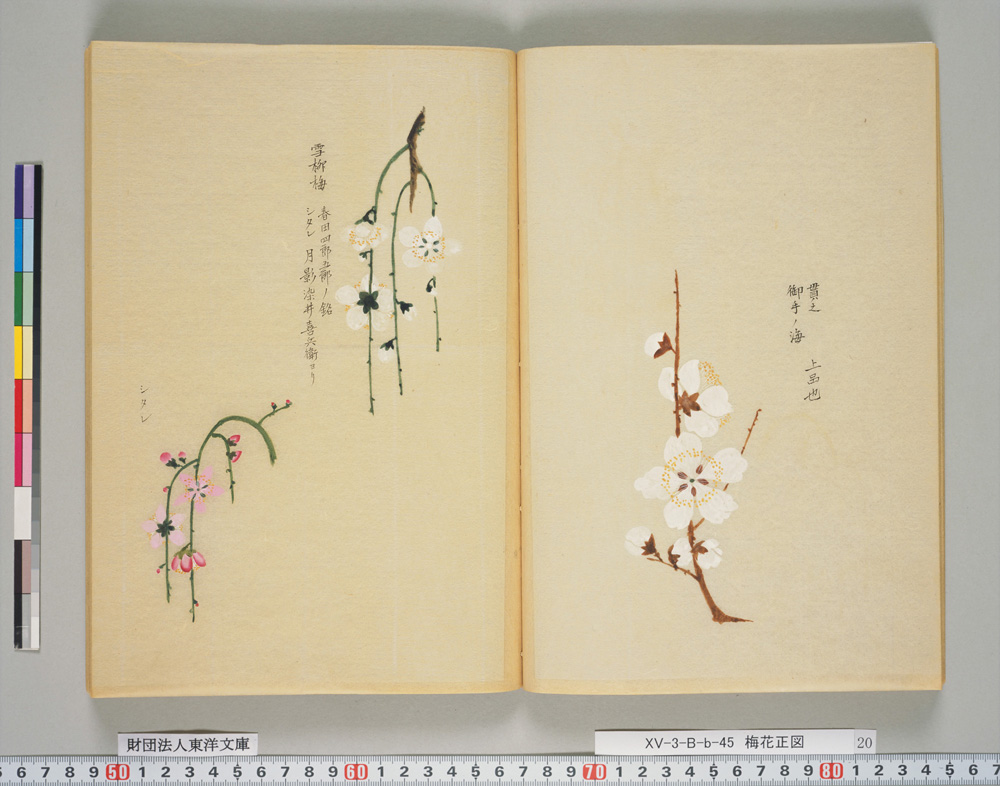 貫之
御手ノ海
上品也
雪柳梅
春田四郎五郎ノ銘
シタレ 月影 染井喜兵衛ヨリ
シタレ
財団法人東洋文庫
XV-3-B-b-45 梅花正図
20
5 6 7 8 9 50 1 2 3 4 5 6 7 8 9 60 1 2 3 4 5 6 7 8 9 70 1 2 3 4 5 6 7 8 9 80 1 2 3 4 5 6 7